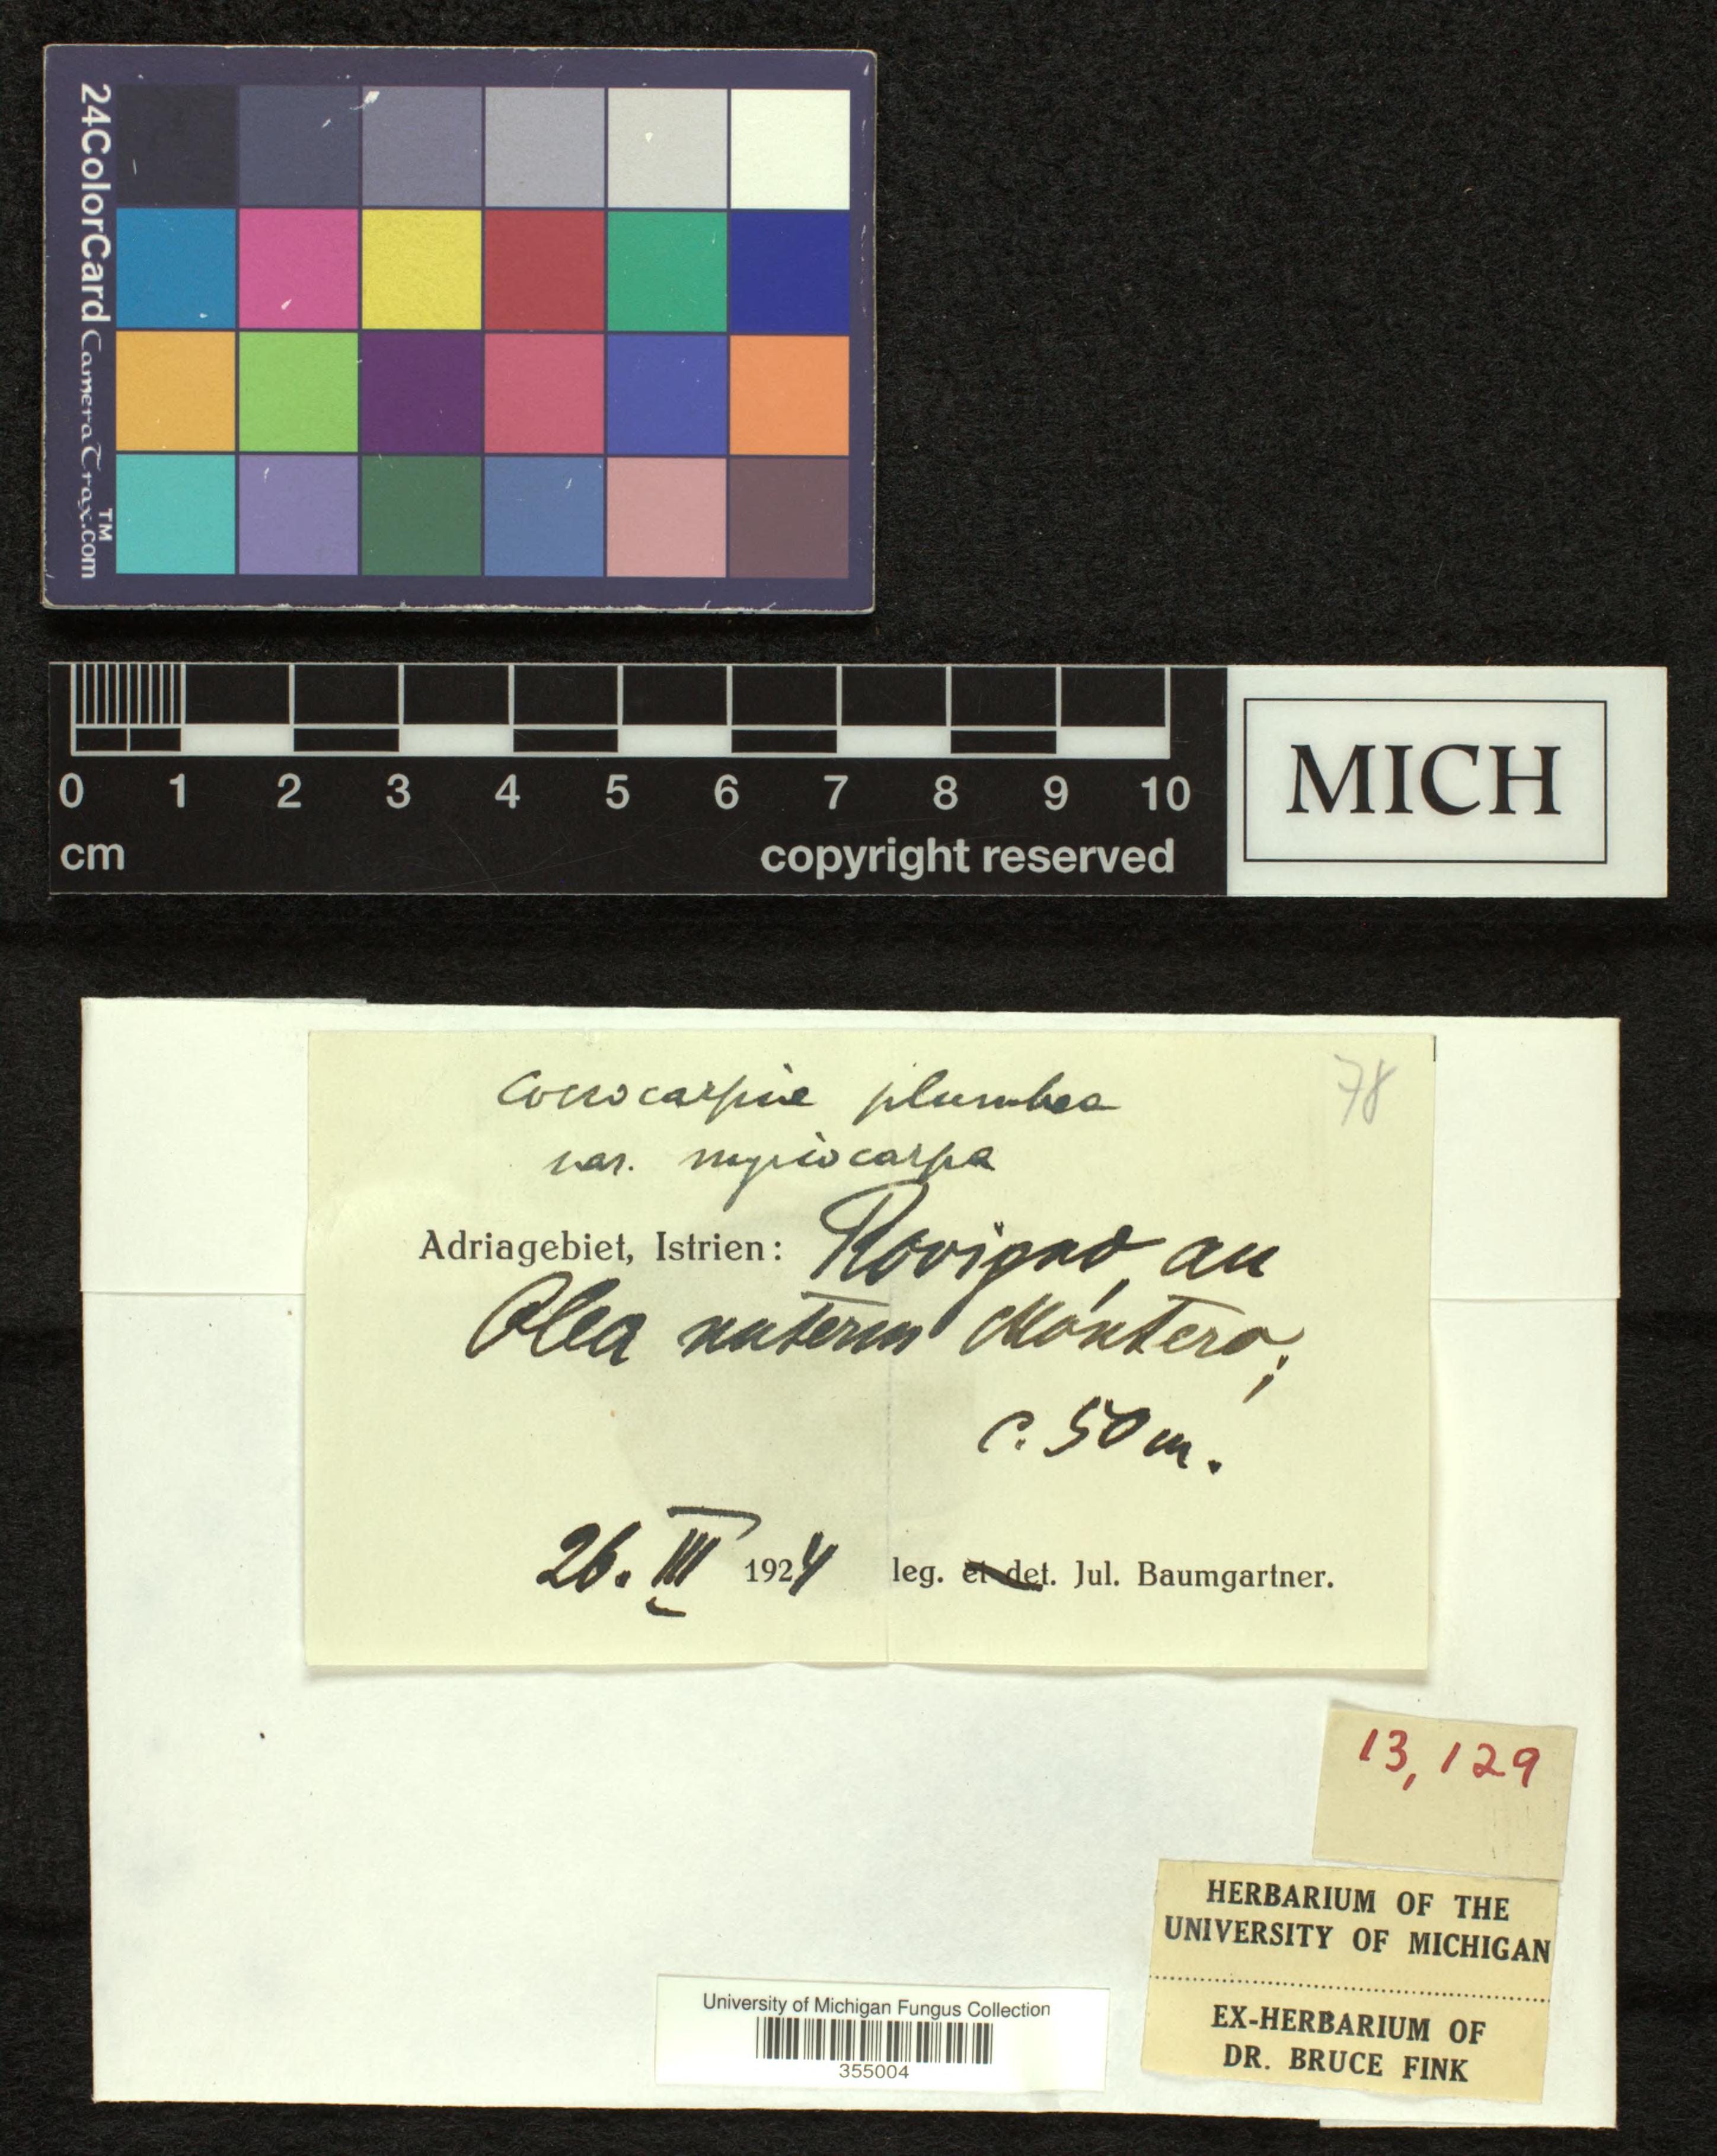 24ColorCard CameraTrax.com
TM
0 1 2 3 4 5 6 7 8 9 10
cm copyright reserved
MICH
78
Coccocarpia plumbea
var. myriocarpa
Adriagebiet, Istrien: Rovigno, an
Olea unterm Montero;
c. 50 m.
26. III 1924 leg. et det. Jul. Baumgartner.
13,129
HERBARIUM OF THE
UNIVERSITY OF MICHIGAN
EX-HERBARIUM OF
DR. BRUCE FINK
University of Michigan Fungus Collection
355004